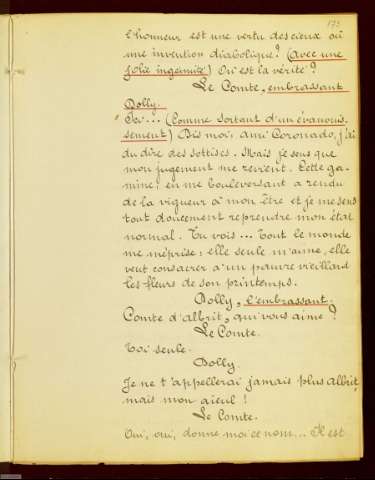 173
l'honneur est une vertu des cieux où
une invention diabolique? (Avec une
folie ingénuité) Où est la vérité?
Le Comte, embrassant
Dolly.
Ici... (Comme sortant d'un évanouis-
sement) Dis moi, ami Coronado, j'ai
du dire des sottises. Mais je sens que
mon jugement me revient. Cette ga-
mine, en me bouleversant a rendu
de la vigueur à mon être et je me sens
tout doucement reprendre mon état
normal. Tu vois... Tout le monde
me méprise; elle seule m'aime, elle
veut consacrer à un pauvre vieillard
les fleurs de son printemps.
Dolly, l'embrassant.
Comte d'albrit, qui vous aime?
Le Comte.
Toi seule.
Dolly.
Je ne t'appellerai jamais plus Albrit,
mais mon aïeul!
Le Comte.
Oui, oui, donne moi ce nom... Il est